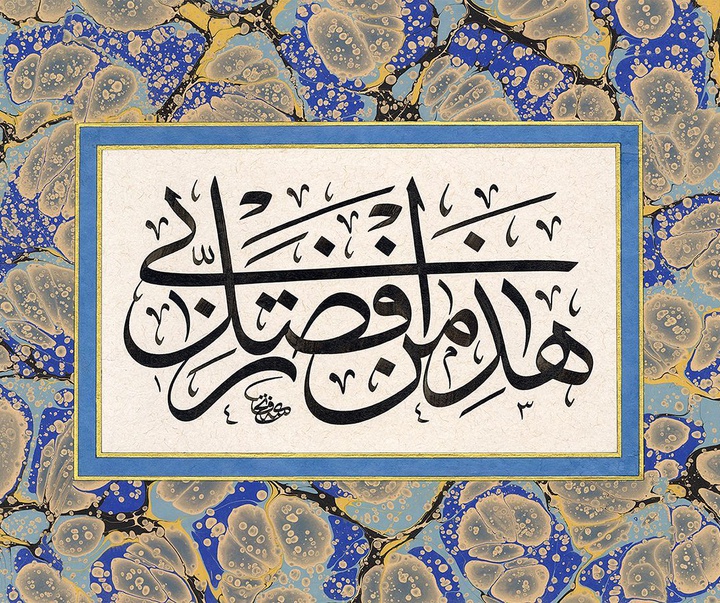 هذا من فضل ربي
١٤٤٣